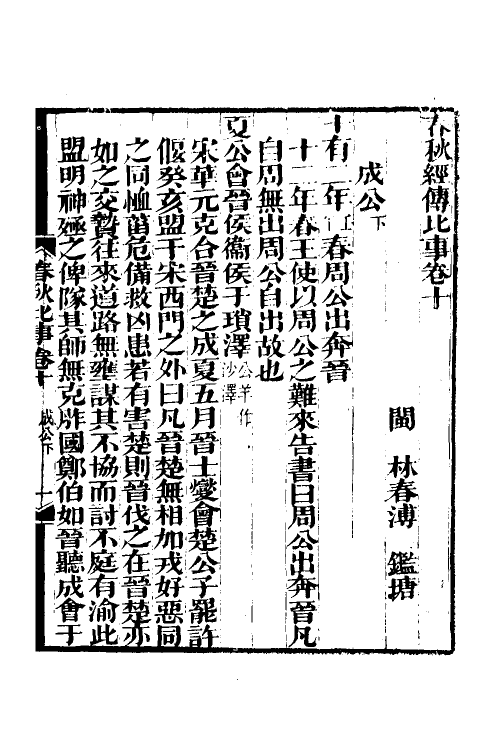 春秋經傳比事卷十
閩　林春溥　鑑塘
成公下
十有二年春周公出奔晉
十二年春王使以周公之難來告書曰周公出奔晉凡
自周無出周公自出故也
夏公會晉侯衞侯于瑣澤公羊作沙澤
宋華元克合晉楚之成夏五月晉士燮會楚公子罷許
偃癸亥盟于宋西門之外曰凡晉楚無相加戎好惡同
之同恤菑危備救凶患若有害楚則晉伐之在晉楚亦
如之交贄往來道路無壅謀其不協而討不庭有渝此
盟明神殛之俾隊其師無克胙國鄭伯如晉聽成會于
春秋比事卷十　成公下　一